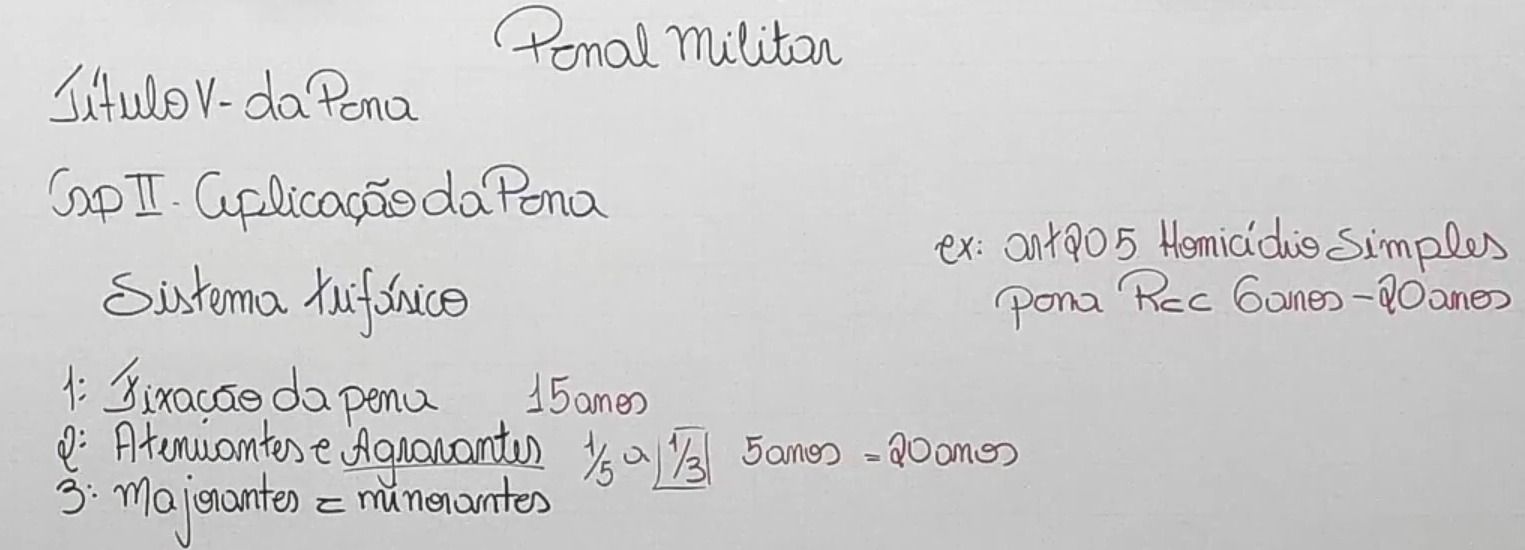 Penal Militar
Título V - da Pena
Cap II - Aplicação da Pena
ex: art 205 Homicídio Simples
pena Rec 6 anos - 20 anos
Sistema trifásico
1: Fixação da pena 15 anos
2: Atenuantes e Agravantes 1/5 a 1/3 5 anos = 20 anos
3: Majorantes = minorantes